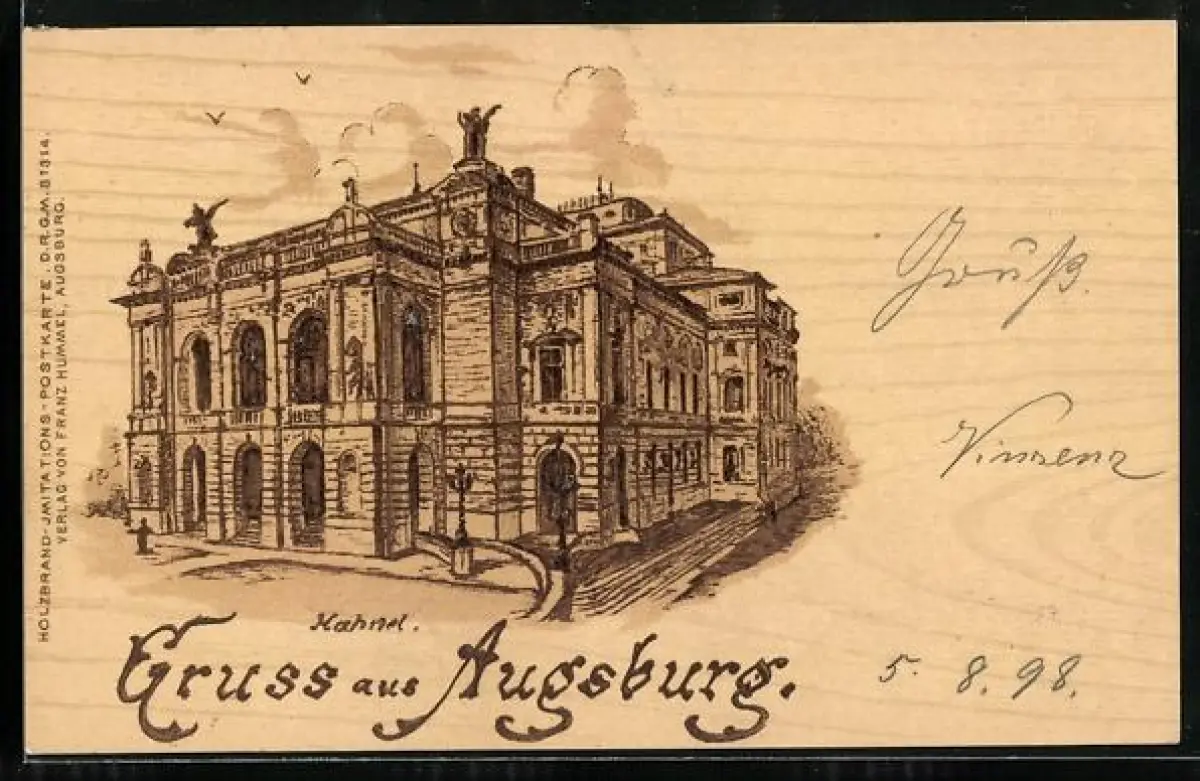 HOLZBRAND-JMITATIONS-POSTKARTE. D.R.G.M. 81314.
VERLAG VON FRANZ HUMMEL, AUGSBURG.
Gruß.
Vinzenz
Hahnel.
Gruss aus Augsburg.
5. 8. 98.